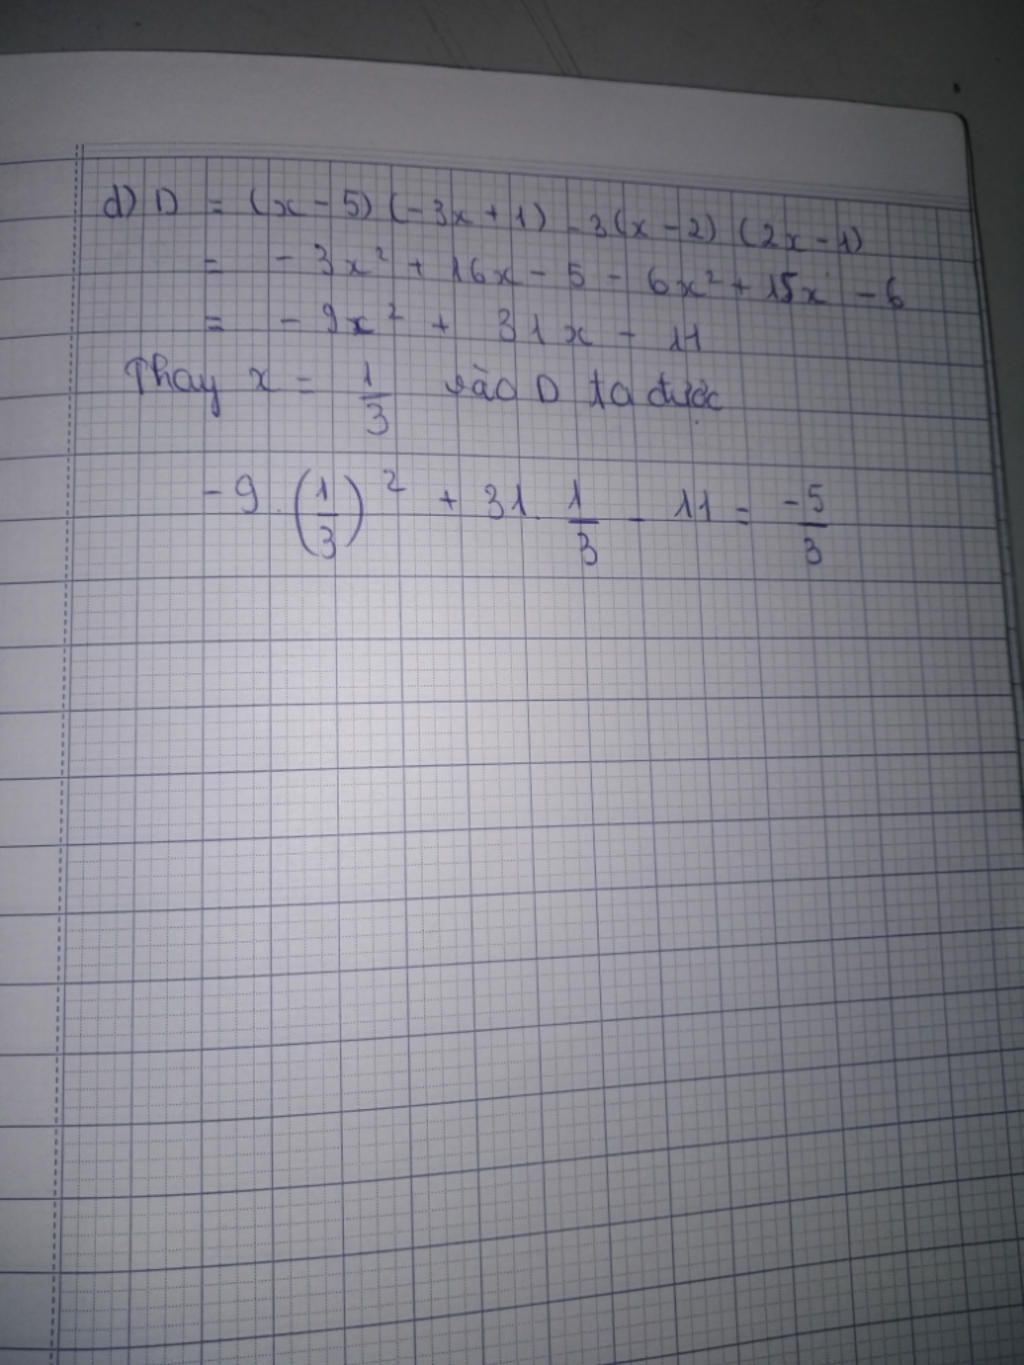 d) D = (x - 5) (-3x + 1) - 3(x - 2) (2x - 1)
= - 3x² + 16x - 5 - 6x² + 15x - 6
= - 9x² + 31x - 11
Thay x = 1/3 vào D ta được
-9.(1/3)² + 31.1/3 - 11 = -5/3